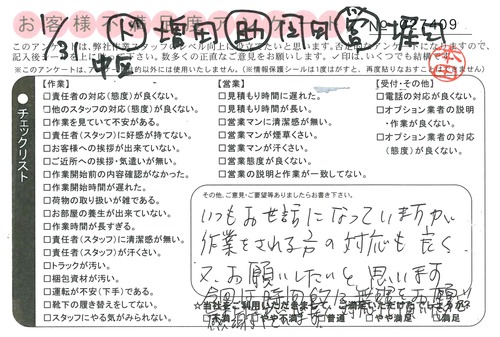 お客様不満足度アンケート
No 017409
1/31
ド 増田 助 江川 営 堀
中区
このアンケートは、弊社作業スタッフのレベル向上に役立てたいと思います。
※このアンケートは、
以外には使用いたしません。(※情報保護シールは1度はがすと、再度貼りなおすことは出来ません)
チェックリスト
【作業】
□責任者の対応(態度)が良くない。
□他のスタッフの対応(態度)が良くない。
□作業を見ていて不安がある。
□責任者(スタッフ)に好感が持てない。
□お客様への挨拶が出来ていない。
□ご近所への挨拶・気遣いが無い。
□作業開始前の内容確認がなかった。
□作業開始時間が遅れた。
□荷物の取り扱いが雑である。
□お部屋の養生が出来ていない。
□作業時間が長すぎる。
□責任者(スタッフ)に清潔感が無い。
□責任者(スタッフ)が汗くさい。
□トラックが汚い。
□梱包資材が汚い。
□運転が不安(下手)である。
□靴下の履き替えをしてない。
□スタッフにやる気がみられない。
【営業】
□見積もり時間に遅れた。
□見積もり時間が長い。
□営業マンに清潔感が無い。
□営業マンが煙草くさい。
□営業マンが汗くさい。
□営業態度が良くない。
□営業の説明と作業が一致してない。
【受付・その他】
□電話の対応が良くない。
□オプション業者の説明
・作業が良くない。
□オプション業者の対応
(態度)が良くない。
その他、ご意見・ご要望等ありましたらお書き下さい。
いつもお世話になっていますが
作業をされる方の対応も良く
又、お願いしたいと思います
今回は時間的に無理をお願い
☆当社をご利用いただきまして、ご満足いただけたでしょうか?
□不満 □やや不満 □普通 □やや満足 □満足